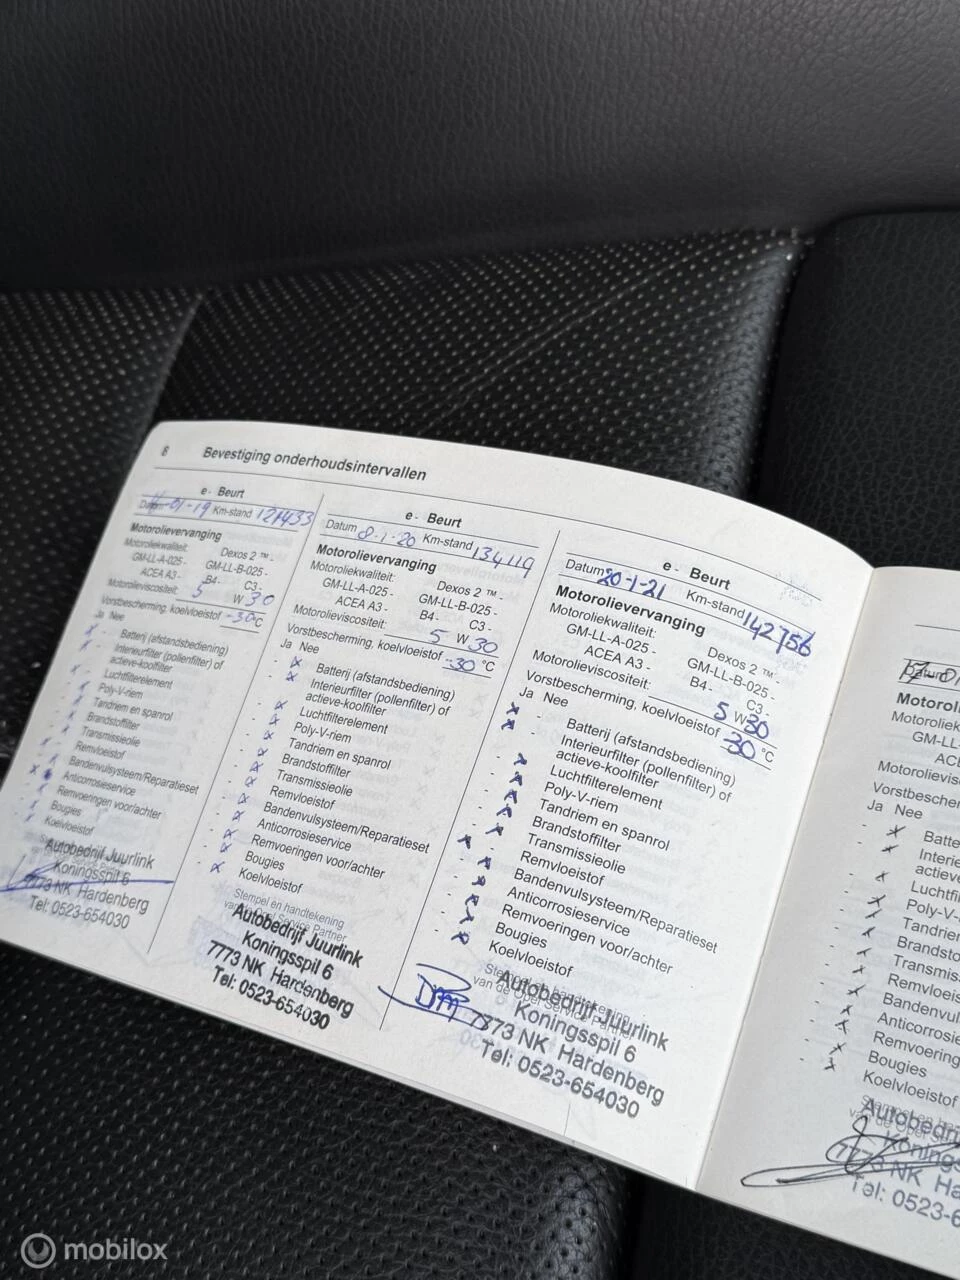 8 Bevestiging onderhoudsintervallen
e - Beurt
Datum -01-19 Km-stand 121433
Motorolievervanging
Motoroliekwaliteit: Dexos 2 ™ -
GM-LL-A-025 - GM-LL-B-025 -
ACEA A3 - B4 - C3 -
Motorolieviscositeit: 5 W 30
Vorstbescherming, koelvloeistof -30 °C
Ja Nee
Batterij (afstandsbediening)
Interieurfilter (pollenfilter) of
actieve-koolfilter
Luchtfilterelement
Poly-V-riem
Tandriem en spanrol
Brandstoffilter
Transmissieolie
Remvloeistof
Bandenvulsysteem/Reparatieset
Anticorrosieservice
Remvoeringen voor/achter
Bougies
Koelvloeistof
Autobedrijf Juurlink
Koningsspil 6
7773 NK Hardenberg
Tel: 0523-654030
e - Beurt
Datum 8-1-20 Km-stand 134119
Motorolievervanging
Motoroliekwaliteit: Dexos 2 ™ -
GM-LL-A-025 - GM-LL-B-025 -
ACEA A3 - B4 - C3 -
Motorolieviscositeit: 5 W 30
Vorstbescherming, koelvloeistof -30 °C
Ja Nee
Batterij (afstandsbediening)
Interieurfilter (pollenfilter) of
actieve-koolfilter
Luchtfilterelement
Poly-V-riem
Tandriem en spanrol
Brandstoffilter
Transmissieolie
Remvloeistof
Bandenvulsysteem/Reparatieset
Anticorrosieservice
Remvoeringen voor/achter
Bougies
Koelvloeistof
Stempel en handtekening
van de Opel Service Partner
Autobedrijf Juurlink
Koningsspil 6
7773 NK Hardenberg
Tel: 0523-654030
e - Beurt
Datum 20-1-21 Km-stand 142756
Motorolievervanging
Motoroliekwaliteit: Dexos 2 ™ -
GM-LL-A-025 - GM-LL-B-025 -
ACEA A3 - B4 - C3 -
Motorolieviscositeit: 5 W 30
Vorstbescherming, koelvloeistof -30 °C
Ja Nee
Batterij (afstandsbediening)
Interieurfilter (pollenfilter) of
actieve-koolfilter
Luchtfilterelement
Poly-V-riem
Tandriem en spanrol
Brandstoffilter
Transmissieolie
Remvloeistof
Bandenvulsysteem/Reparatieset
Anticorrosieservice
Remvoeringen voor/achter
Bougies
Koelvloeistof
Stempel en handtekening
van de Opel Service Partner
Autobedrijf Juurlink
Koningsspil 6
7773 NK Hardenberg
Tel: 0523-654030
Datum
Motorol
Motoroliek
GM-LL-
ACE
Motorolievis
Vorstbescher
Ja Nee
Batte
Interie
actieve
Luchtfi
Poly-V-
Tandrien
Brandsto
Transmis
Remvloeis
Bandenvul
Anticorrosie
Remvoering
Bougies
Koelvloeistof
Stempel en hand
van de Opel
Autobedri
Konings
7773 NK Ha
Tel: 0523-6
mobilox